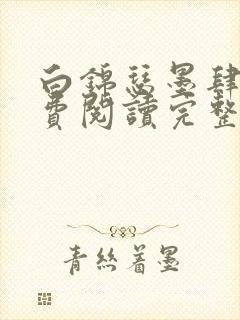 白錦瑟墨肆
費閱讀完整
青絲着墨